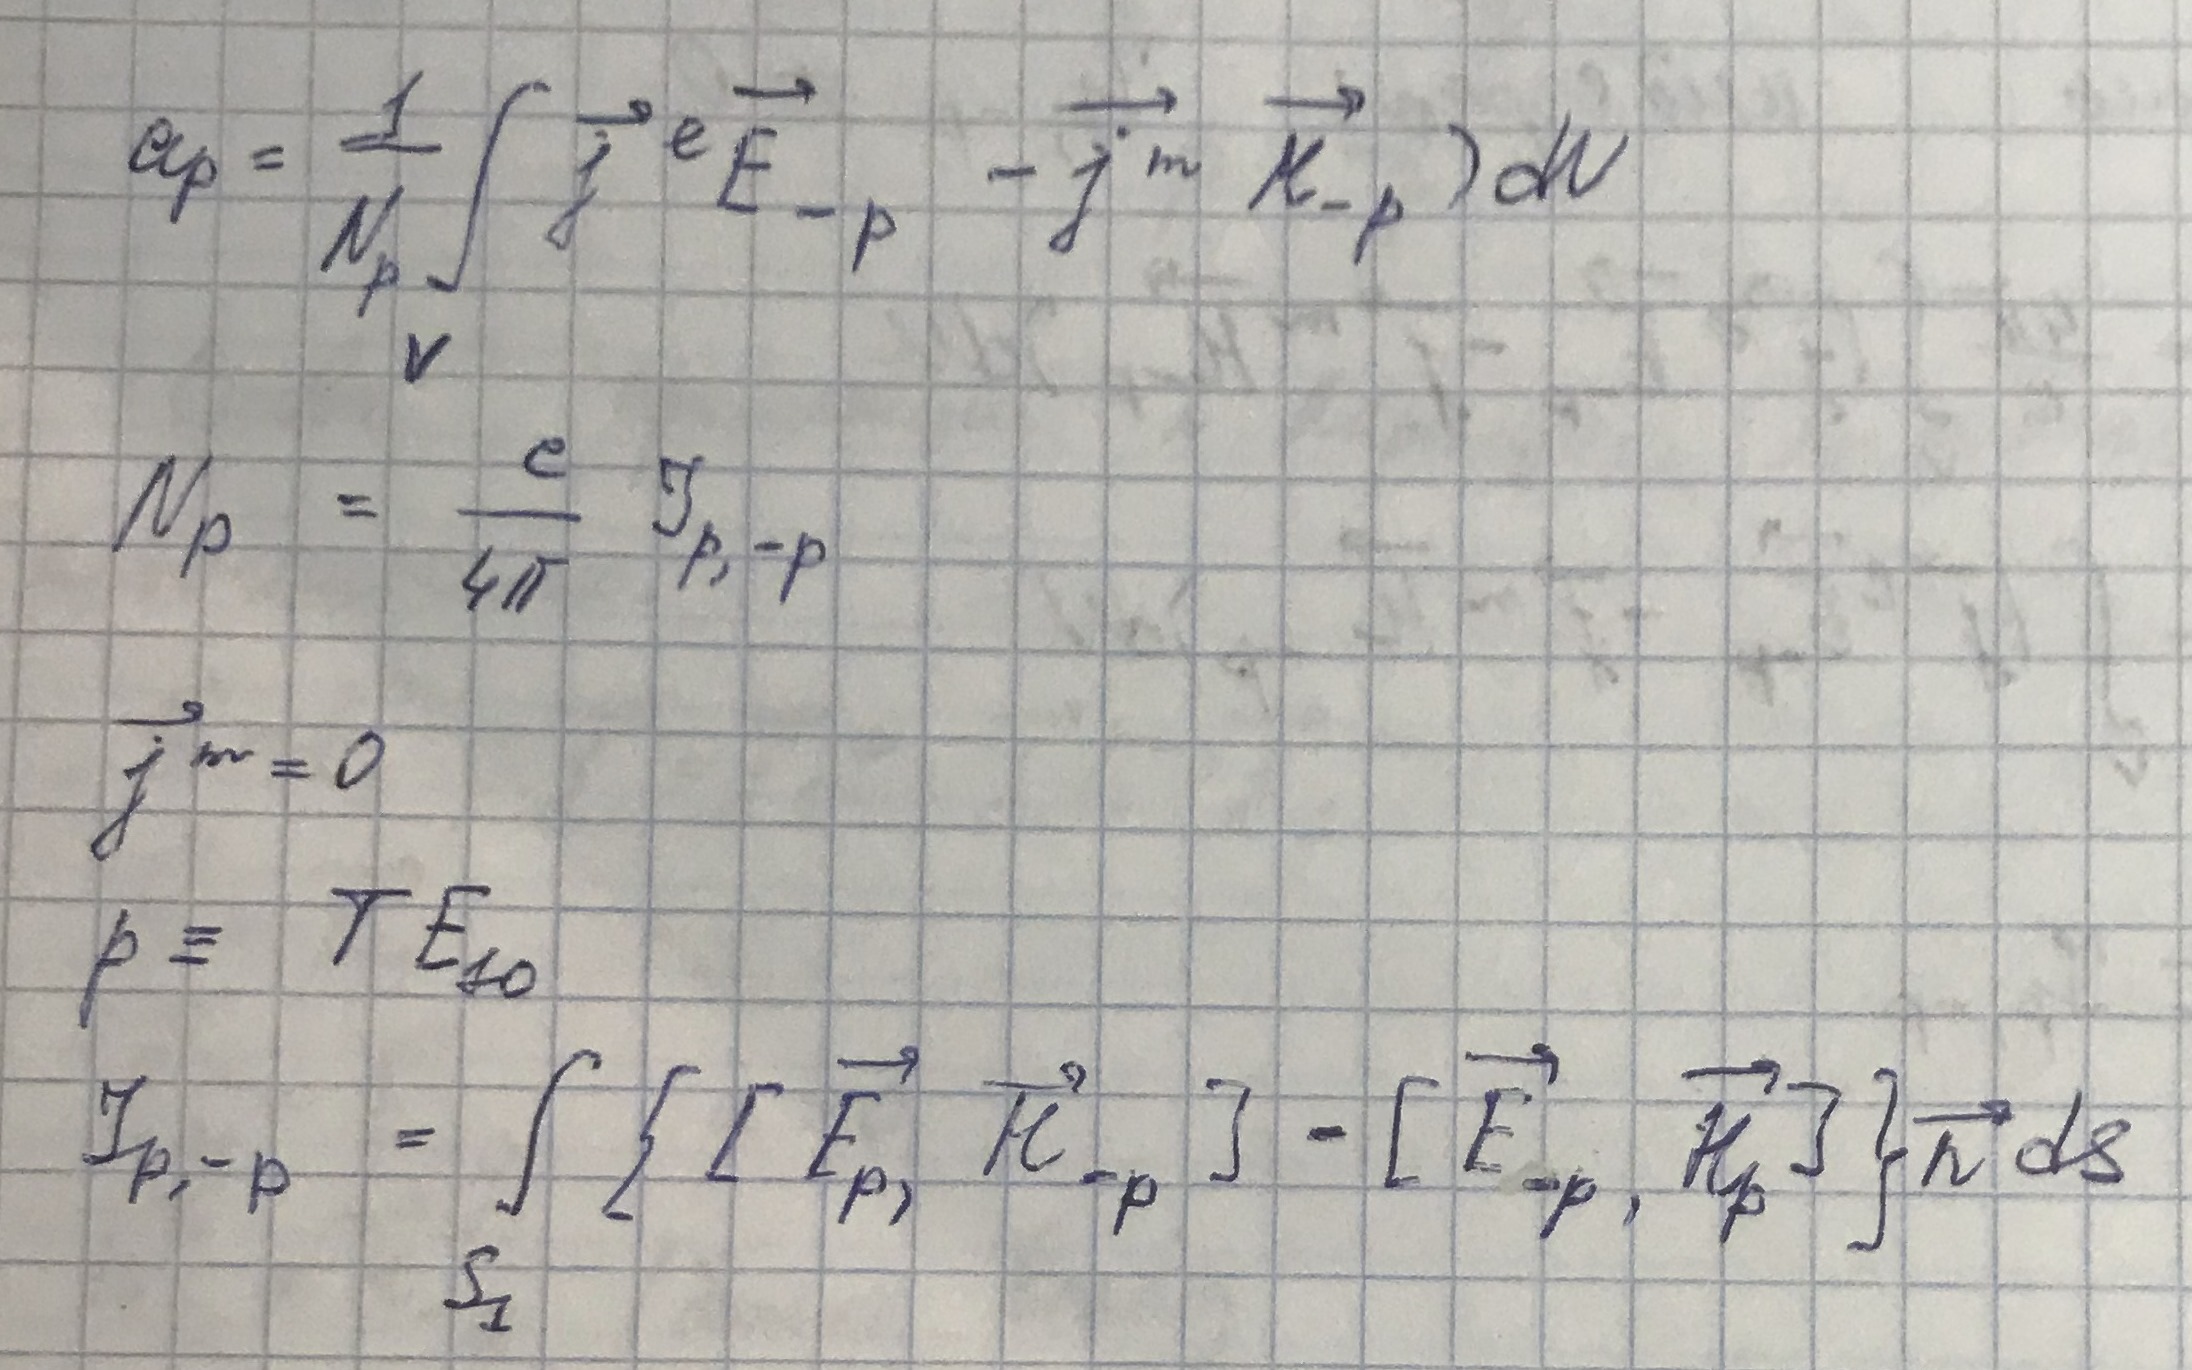 a_p = 1/N_p ∫_V j⃗^e E⃗_{-p} - j⃗^m H⃗_{-p}) dV
N_p = c/4π J_{p,-p}
j⃗^m = 0
p ≡ TE_{10}
J_{p,-p} = ∫_{S_1} { [E⃗_p, H⃗_{-p}] - [E⃗_{-p}, H⃗_p] } n⃗ ds